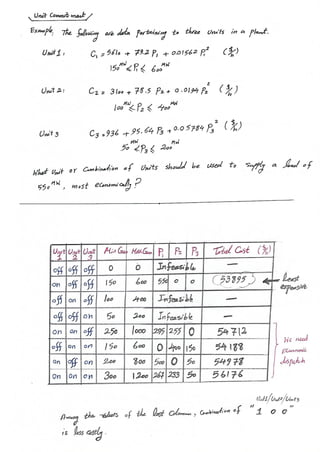 Unit Commitment
Example The following are data pertaining to three units in a plant.
Unit 1: C₁ = 5610 + 79.2 P₁ + 0.01562 P₁² ($/h)
150 MW ≤ P₁ ≤ 600 MW
Unit 2: C₂ = 3100 + 78.5 P₂ + 0.0194 P₂² ($/h)
100 MW ≤ P₂ ≤ 400 MW
Unit 3 C₃ = 936 + 95.64 P₃ + 0.05784 P₃² ($/h)
50 MW ≤ P₃ ≤ 200 MW
What unit or combination of units should be used to supply a load of
550 MW, most economically?
Unit 1 Unit 2 Unit 3 Min Gen Max Gen P₁ P₂ P₃ Total Cost ($/h)
off off off 0 0 Infeasible —
on off off 150 600 550 0 0 53895 least expensive
off on off 100 400 Infeasible —
off off on 50 200 Infeasible —
on on off 250 1000 295 255 0 54712
off on on 150 600 0 400 150 54188
on off on 200 800 500 0 50 54978
on on on 300 1200 267 233 50 56176
We need economic dispatch
Unit1/Unit2/Unit3
Among the values of the last column, combination of "1 0 0"
is less costly.